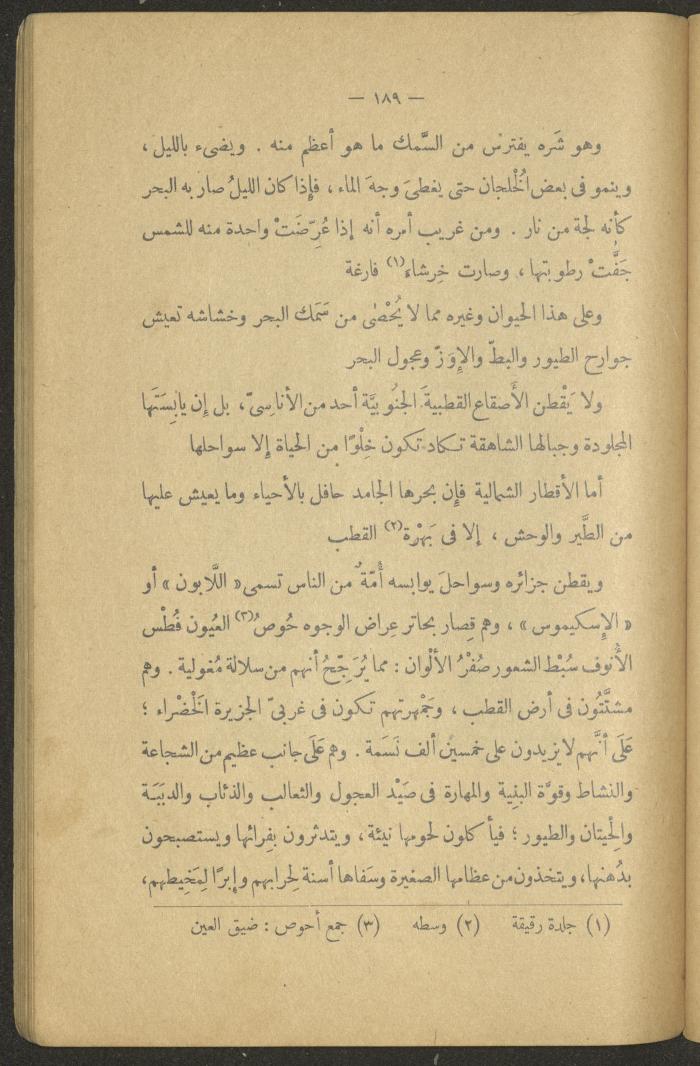 — ١٨٩ —
وهو شَره يفترس من السَّمك ما هو أعظم منه . ويضىء بالليل ،
وينمو فى بعض الخُلْجان حتى يغطىَ وجهَ الماء ، فإذا كان الليلُ صار به البحر
كأنه لجة من نار . ومن غريب أمره أنه إذا عُرِّضَتْ واحدة منه للشمس
جَفَّتْ رطوبتها ، وصارت خِرشاء(١) فارغة
وعلى هذا الحيوان وغيره مما لا يُحْصَى من سَمَك البحر وخشاشه تعيش
جوارح الطيور والبطّ والإوَزّ وعجول البحر
ولا يَقْطن الأَصقاع القطبيةَ الجنُوبيَّة أحد من الأناسِىّ، بل إن يابِستَها
المجلودة وجبالها الشاهقة تكاد تكون خِلْوًا من الحياة إلا سواحلها
أما الأقطار الشمالية فإن بحرها الجامد حافل بالأحياء وما يعيش عليها
من الطَّير والوحش ، إلا فى بَهْرة(٢) القطب
ويقطن جزائره وسواحلَ يوابسه أُمّةٌ من الناس تسمى « اللَّابون » أو
« الإسكيموس » ، وهم قِصار بحاتر عِراض الوجوه حُوصُ(٣) العُيون فُطْس
الأُنوف سُبْط الشعور صُفْرُ الألْوان : مما يُرَجِّحُ أنهم من سلالة مُغولية . وهم
مشتَّتُون فى أرض القطب ، وجَمْهرتهم تكون فى غربىّ الجزيرة الخَضْراء ؛
عَلَى أنَّهم لا يزيدون على خمسين ألف نَسَمة . وهم عَلَى جانب عظيم من الشجاعة
والنشاط وقوَّة البنِية والمهارة فى صَيْد العجول والثعالب والذئاب والدبَبَة
والحِيتان والطيور ؛ فيأكلون لحومها نيئة ، ويتدثرون بفِرائها ويستصبحون
بدُهنها، ويتخذون من عظامها الصغيرة وسَفاها أسنة لحِرابهم وإبرًا لِمَخِيطهم،
(١) جلدة رقيقة (٢) وسطه (٣) جمع أحوص : ضيق العين